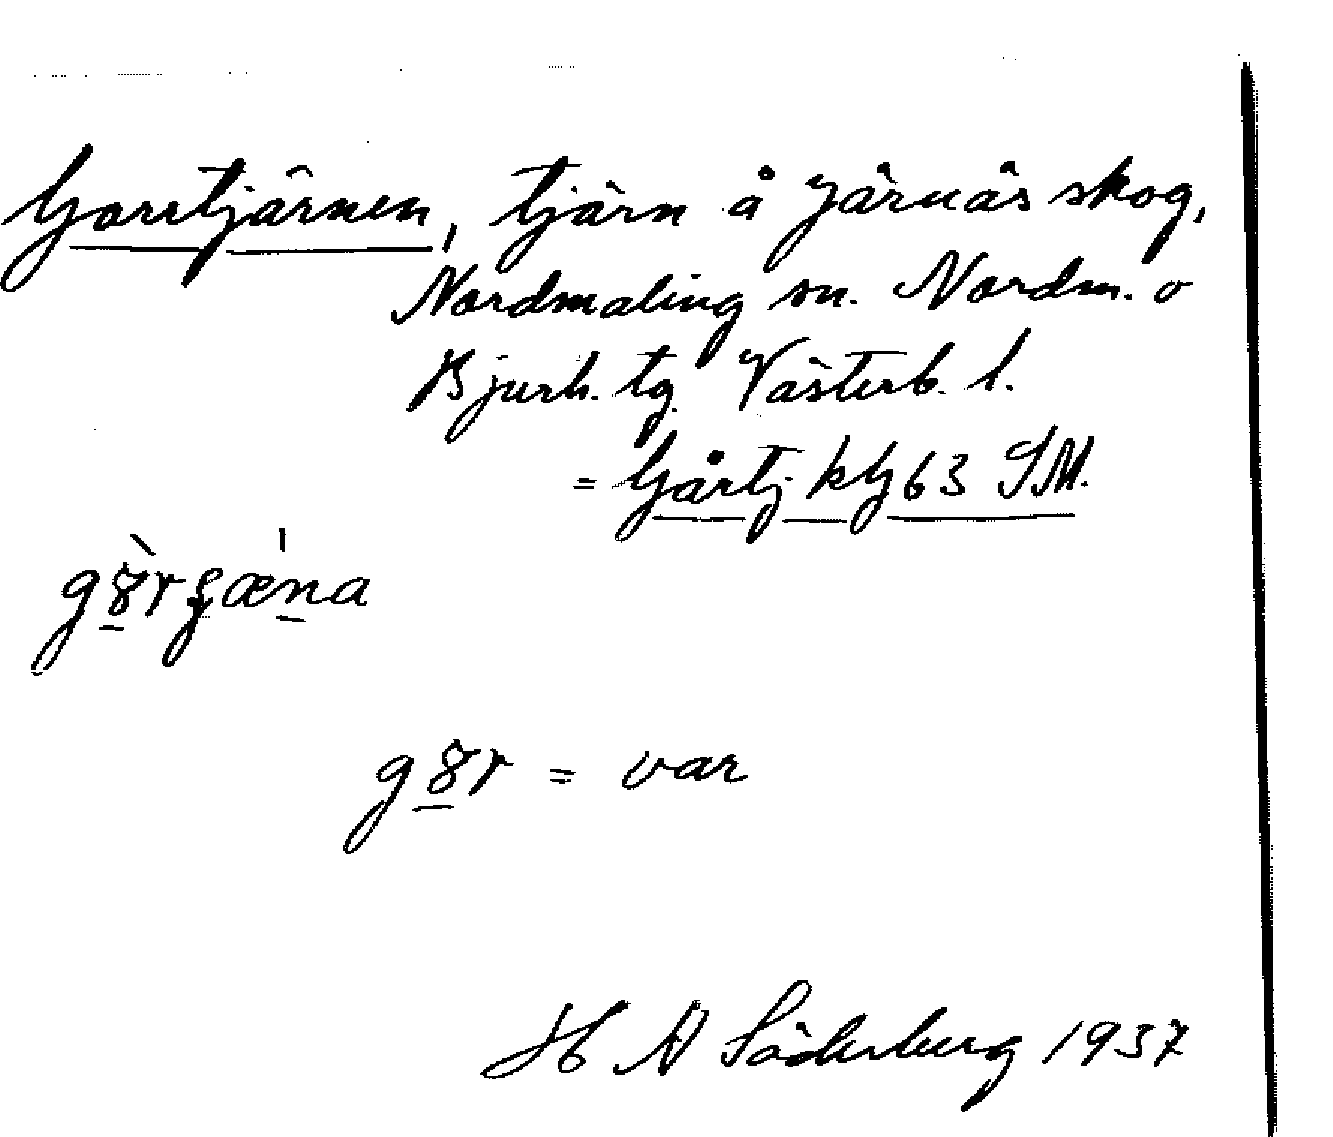 Gorrtjärnen, tjärn å Järnäs skog,
Nordmaling sn. Nordm. o
Bjurh. tg. Västerb. l.
= Gårtj. kbl 63 SM.
gȣ̀rʂæ̍na
gȣr = var
H A Söderberg 1937